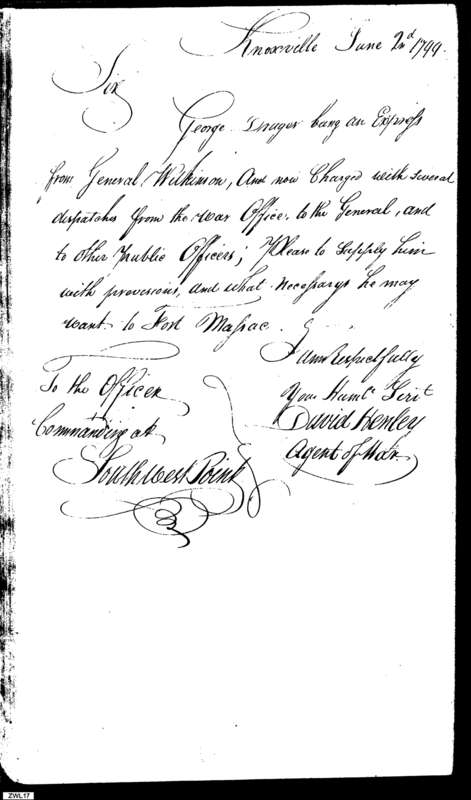 Knoxville June 2nd 1799.
Sir
George being an Express
from General Wilkinson, And now Charged with several
dispatches from the war Office, to the General, and
to other Public Officers; Please to Supply him
with provisions, and what Necessarys he may
want to Fort Massac.
I am Respectfully
Your Humbe Servt
David Henley
Agent of War
To the Officer
Commanding at
South West Point
ZWL17